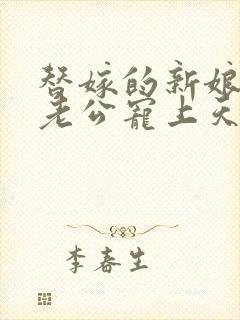 替嫁的新娘
老公宠上天
李春生